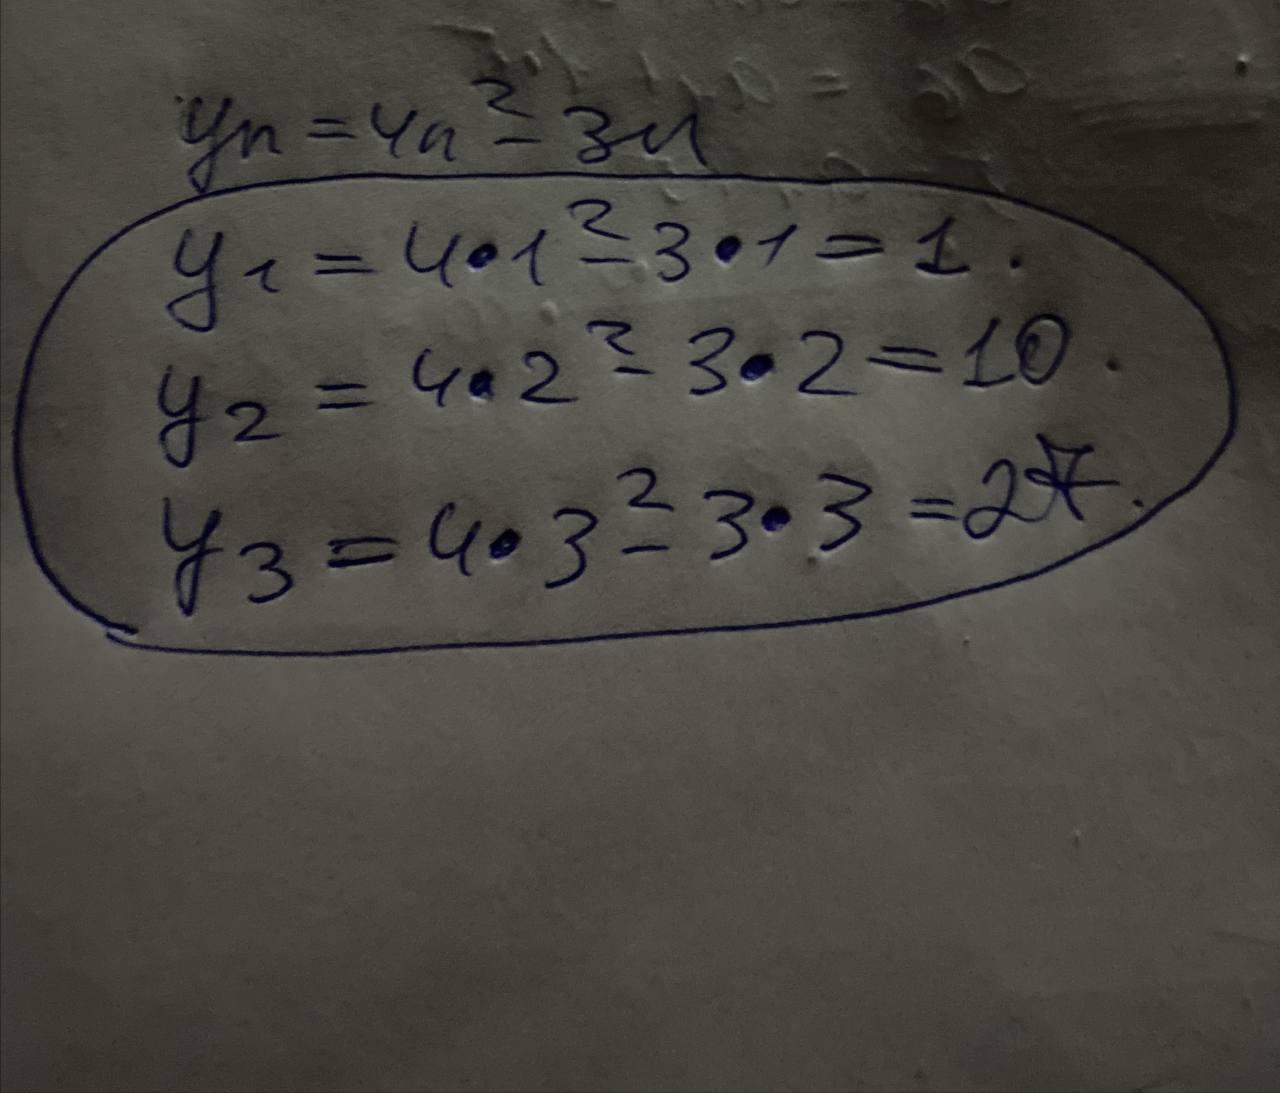 yn = 4n² - 3n
y1 = 4•1² - 3•1 = 1.
y2 = 4•2² - 3•2 = 10.
y3 = 4•3² - 3•3 = 27.